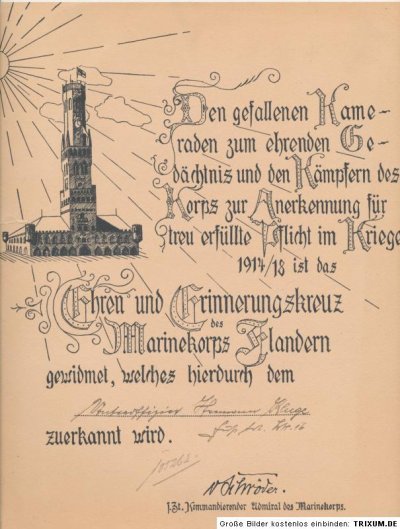 Den gefallenen Kame-
raden zum ehrenden Ge-
dächtnis und den Kämpfern des
Korps zur Anerkennung für
treu erfüllte Pflicht im Kriege
1914/18 ist das
Ehren und Erinnerungskreuz
des
Marinekorps Flandern
gewidmet, welches hierdurch dem
Unteroffizier Hermann Kluge
zuerkannt wird.
v Schröder.
z. Zt. Kommandierender Admiral des Marinekorps.
Große Bilder kostenlos einbinden: TRIXUM.DE